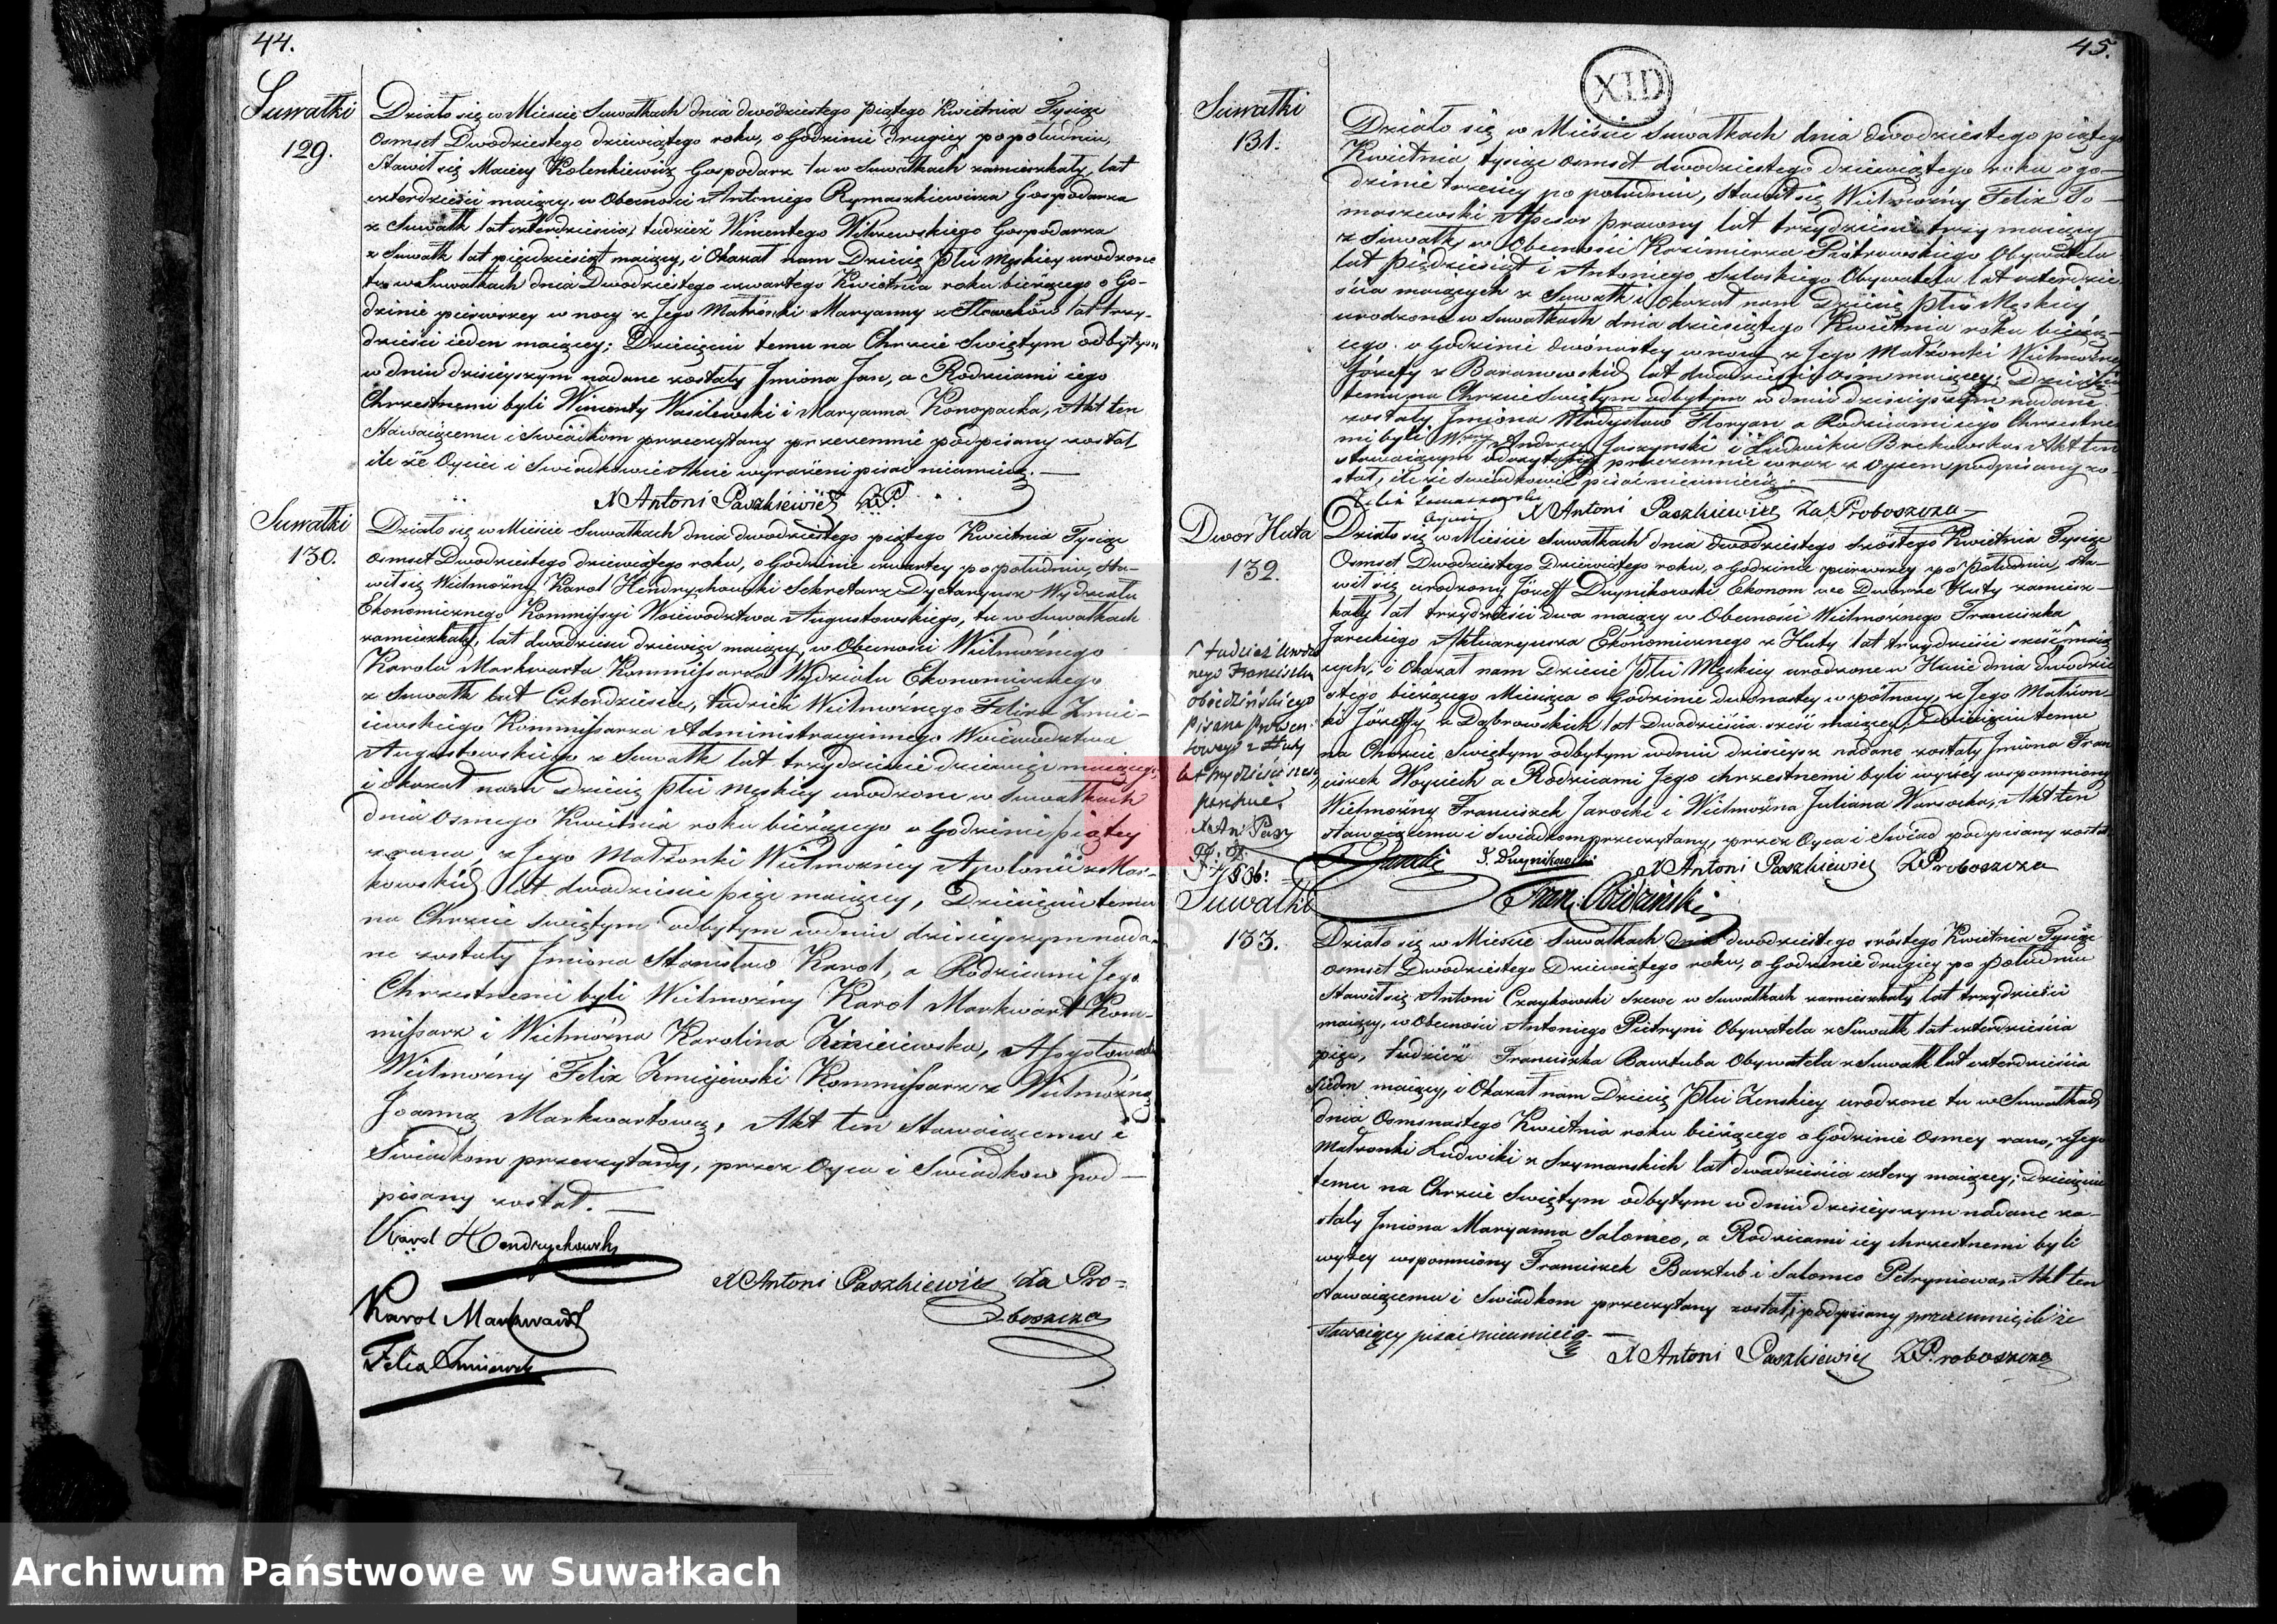 44.
Suwałki
129.
Działo się w Mieście Suwałkach dnia dwódziestego piątego Kwietnia Tysiąc
osmset Dwodziestego dziewiątego roku, o Godzinie drugiey popołudniu,
Stawił się Maciey Kolenkiewicz Gospodarz tu w Suwałkach zamieszkały, lat
czterdzieści maiący, w Obecności Antoniego Rymaszkiewicza Gospodarza
z Suwałk lat czterdzieścia, tudzież Wincentego Wilczewskiego Gospodarza
z Suwałk lat pięćdziesiąt maiący, i Okazał nam Dziecię płci męskiey urodzone
tu w Suwałkach dnia Dwodziestego czwartego Kwietnia roku bieżącego o Go-
dzinie pierwszey w nocy z Jego Małżonki Maryanny z lat trzy-
dzieści ieden maiącey; Dziecięciu temu na Chrzcie Swiętym odbytym
w dniu dzisieyszym nadane zostały Jmiona Jan, a Rodzicami iego
Chrzestnemi byli Wincenty Wasilewski i Maryanna Konopacka, Akt ten
Stawaiącemu i Swiadkom przeczytany przezemnie podpisany został
ile że Oyciec i Swiadkowie Akcie wyrażeni pisać nieumieią.
X Antoni Paszkiewicz ZP.
Suwałki
130.
Działo się w Mieście Suwałkach dnia dwodziestego piątego Kwietnia Tysiąc
osmset Dwodziestego dziewiątego roku, o Godzinie czwartey popołudniu, Sta-
wił się Wielmożny Karol Hendrychowski Sekretarz Dyetaryusz Wydziału
Ekonomicznego Kommissyi Woiewodztwa Augustowskiego, tu w Suwałkach
zamieszkały, lat dwadzieścia dziewięć maiący, w Obecności Wielmożnego
Karola Markwarta Kommissarza Wydziału Ekonomicznego
z Suwałk lat Czterdzieście, tudzież Wielmożnego Felixa Zmie-
iewskiego Kommissarza Administracyinnego Woiewodztwa
Augustowskiego z Suwałk lat trzydzieście dziewięć maiącego,
i okazał nam Dziecię płci męskiey urodzone w Suwałkach
dnia Osmego Kwietnia roku bieżącego o Godzinie piątey
z rana, z Jego Małżonki Wielmożney Apolonii z Mos-
kowskich lat dwadzieście pięć maiącey, Dziecięciu temu
na Chrzcie swiętym odbytym w dniu dzisieyszym nada-
ne zostały Jmiona Stanisław Karol, a Rodzicami Jego
Chrzestnemi byli Wielmożny Karol Markwart Kom-
missarz i Wielmożna Karolina Zmieiewska, Assystował
Wielmożny Felix Zmiejewski Kommissarz z Wielmożną
Joanną Markwartową, Akt ten Stawaiącemu i
Swiadkom przeczytany, przez Oyca i Swiadków pod-
pisany został.
Karol Hendrychowski
X Antoni Paszkiewicz Za Pro-
boszcza
Karol Markwart
Felix Zmiiewski
45.
XID
Suwałki
131.
Działo się w Mieście Suwałkach dnia dwodziestego piątego
Kwietnia, tysiąc osmset dwodziestego dziewiątego roku o go-
dzinie trzeciey po południu, Stawił się Wielmożny Felix To-
maszewski Assesor prawny lat trzydzieści trzy maiący
z Suwałk, w Obecności Kazimierza Piotrowskiego Obywatela
lat Pięćdziesiąt i Antoniego Obywatela lat czterdzie-
ścia maiących z Suwałk i Okazał nam Dziecię płci Męskiey
urodzone w Suwałkach dnia dziesiątego Kwietnia roku bieżą-
cego. o Godzinie dwónastey w nocy z Jego Małżonki Wielmożney
Józefy z Baranowskich lat dwadzieścia ośm maiącey; Dziecięciu
temu na Chrzcie Swiętym odbytym w dniu dzisieyszym nadane
zostały Jmiona Władysław Floryan a Rodzicami iego Chrzestne-
mi byli Andrzey Jaszynski i Ludwika Akt ten
stawaiącym odczytany przezemnie wraz z Oycem podpisany zo-
stał, ile że świadkowie pisać nieumieią.
Felix Tomaszewski
Oyciec X Antoni Paszkiewicz Za Proboszcza
Dwor Huta
132.
Działo się w Mieście Suwałkach dnia dwodziestego szóstego Kwietnia Tysiąc
Osmset Dwodziestego Dziewiątego roku, o Godzinie pierwszey po Południu, Sta-
wił się urodzony Józeff Duynikowski Ekonom we Dworze Huty zamiesz-
kały lat trzydzieści dwa maiący w Obecności Wielmożnego Franciszka
Jareckiego Aktuaryusza Ekonomicznego z Huty lat trzydzieści sześć maią-
cych, i Okazał nam Dziecię Płci Męskiey urodzone w Hucie dnia dwodzie-
stego bieżącego Miesiąca o Godzinie dwónastey w północy, z Jego Małżon-
ki Józeffy z Dąbrowskich lat Dwadzieścia sześć maiącey, Dziecięciu temu
na Chrzcie Swiętym odbytym w dniu dzisieysz. nadane zostały Jmiona Fran-
ciszek Woyciech a Rodzicami Jego chrzestnemi byli wyżey wspomniony
Wielmożny Franciszek Jarocki i Wielmożna Juliana Warsocka, Akt ten
stawaiącemu i swiadkom przeczytany, przez Oyca i Swiad. podpisany został
tudzież Urodzo
nego Franciszka
Obiedzińskiego
Pisarza Prowen
towego z Huty
lat trzydzieści sześć
X An: Pasz
J. Duynikowski X Antoni Paszkiewicz ZProboszcza
Fran. Obiedzinski
Suwałki
133.
Działo się w Mieście Suwałkach dnia dwodziestego szóstego Kwietnia Tysiąc
osmset Dwodziestego Dziewiątego roku, o Godzinie drugiey po Południu
Stawił się Antoni Czaykowski Szewc w Suwałkach zamieszkały lat trzydzieści
maiący, w Obecności Antoniego Pietryni Obywatela z Suwałk lat czterdzieścia
pięć, tudzież Franciszka Basztuba Obywatela z Suwałk lat czterdzieścia
siedm maiący, i Okazał nam Dziecię Płci Zenskiey urodzone tu w Suwałkach
dnia Osmnastego Kwietnia roku bieżącego o Godzinie Osmey rano, z Jego
Małżonki Ludwiki z Szymanskich lat dwadzieścia cztery maiącey; Dziecięciu
temu na Chrzcie Swiętym odbytym w dniu dzisieyszym nadane zo-
stały Jmiona Maryanna Salomea, a Rodzicami iey chrzestnemi byli
wyżey wspomniony Franciszek Basztub i Salomea Petryniowa, Akt ten
stawaiącemu i Swiadkom przeczytany został, podpisany przezemnie, ile że
stawaiący pisać nieumieią.
X Antoni Paszkiewicz ZProboszcza
Archiwum Państwowe w Suwałkach